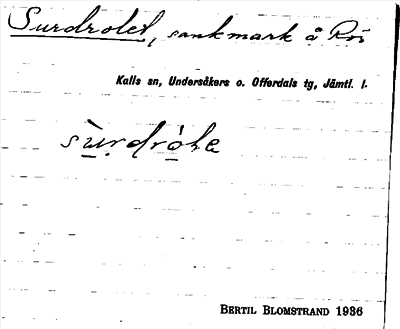 Surdrolet, sankmark å Roi
Kalls sn, Undersåkers o. Offerdals tg, Jämtl. l.
BERTIL BLOMSTRAND 1936